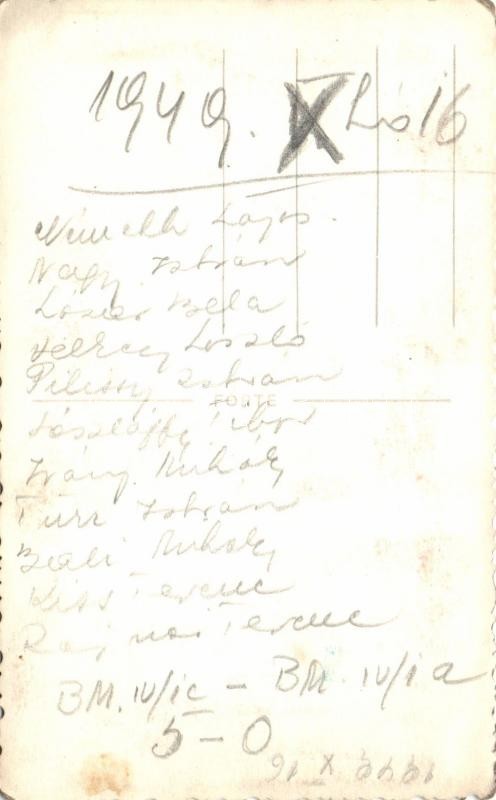 1949. X hó 16
Németh Lajos.
Nagy István
Lózer Béla
László
Pilissy István
FORTE
Tibor
Irány Mihály
Türr István
Beáli Mihály
Kiss Ferenc
Rajnai Ferenc
BM. IV/ic - BM. IV/i a
5-0
1949 X 16